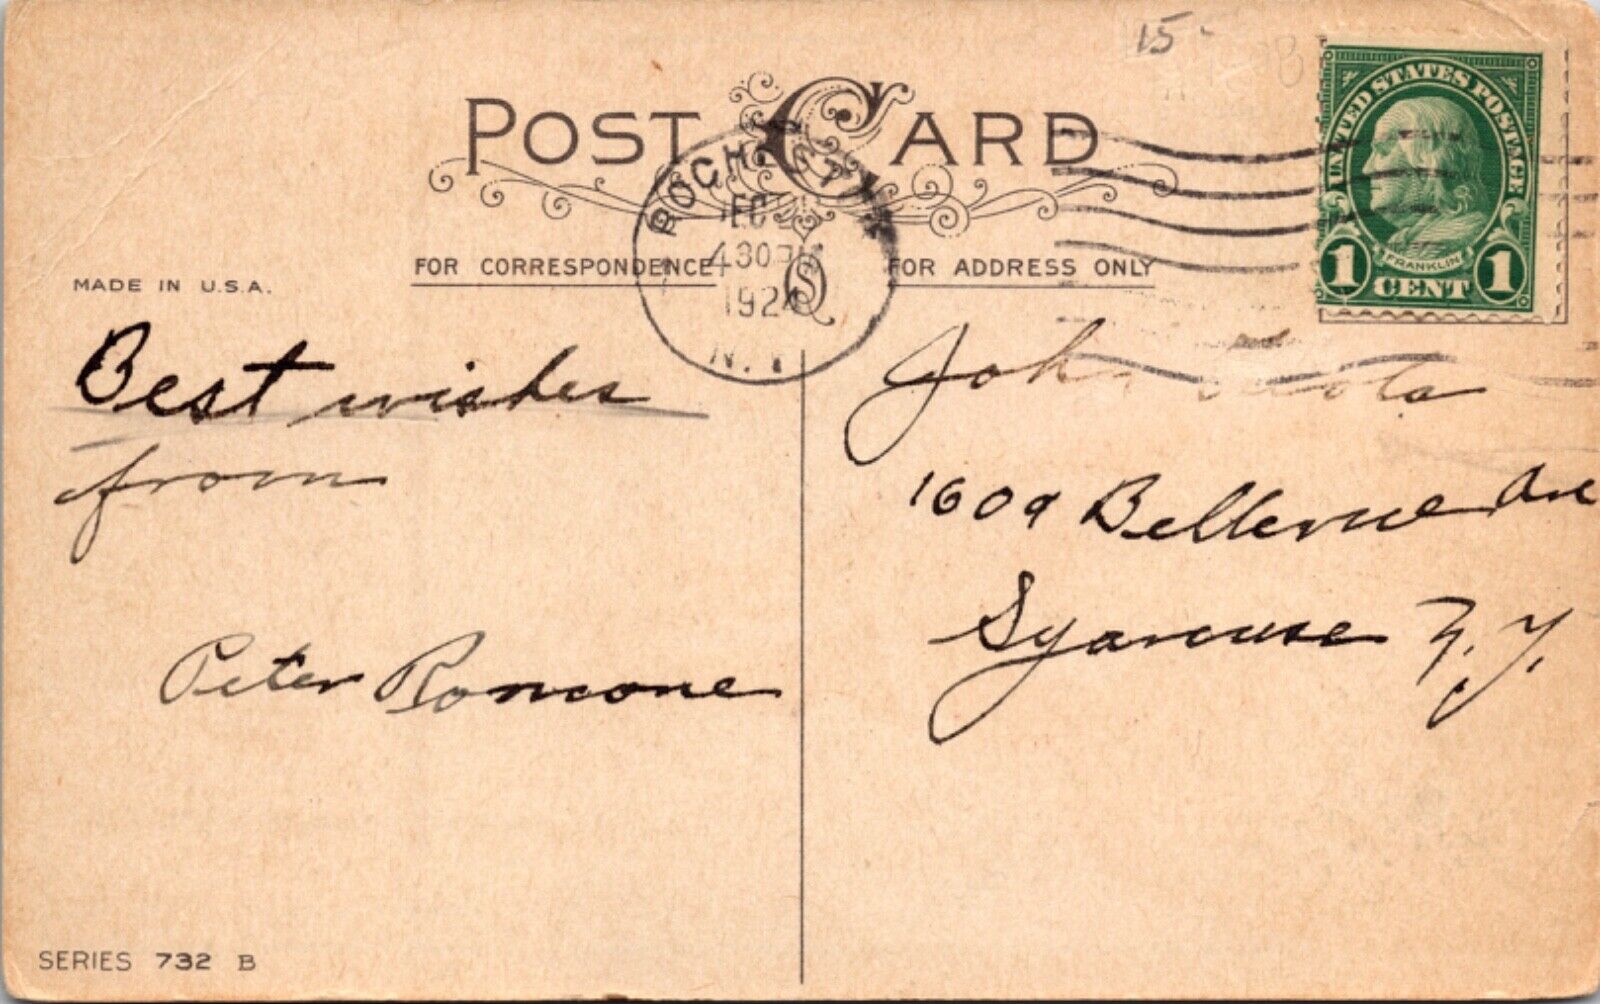 15
POST CARD
ROCH
N.Y.
430 PM
1924
UNITED STATES POSTAGE
FRANKLIN
1 CENT 1
MADE IN U.S.A.
FOR CORRESPONDENCE
FOR ADDRESS ONLY
Best wishes
from
Peter Romcone
John
1609 Bellevue Ave
Syracuse N.Y.
SERIES 732 B